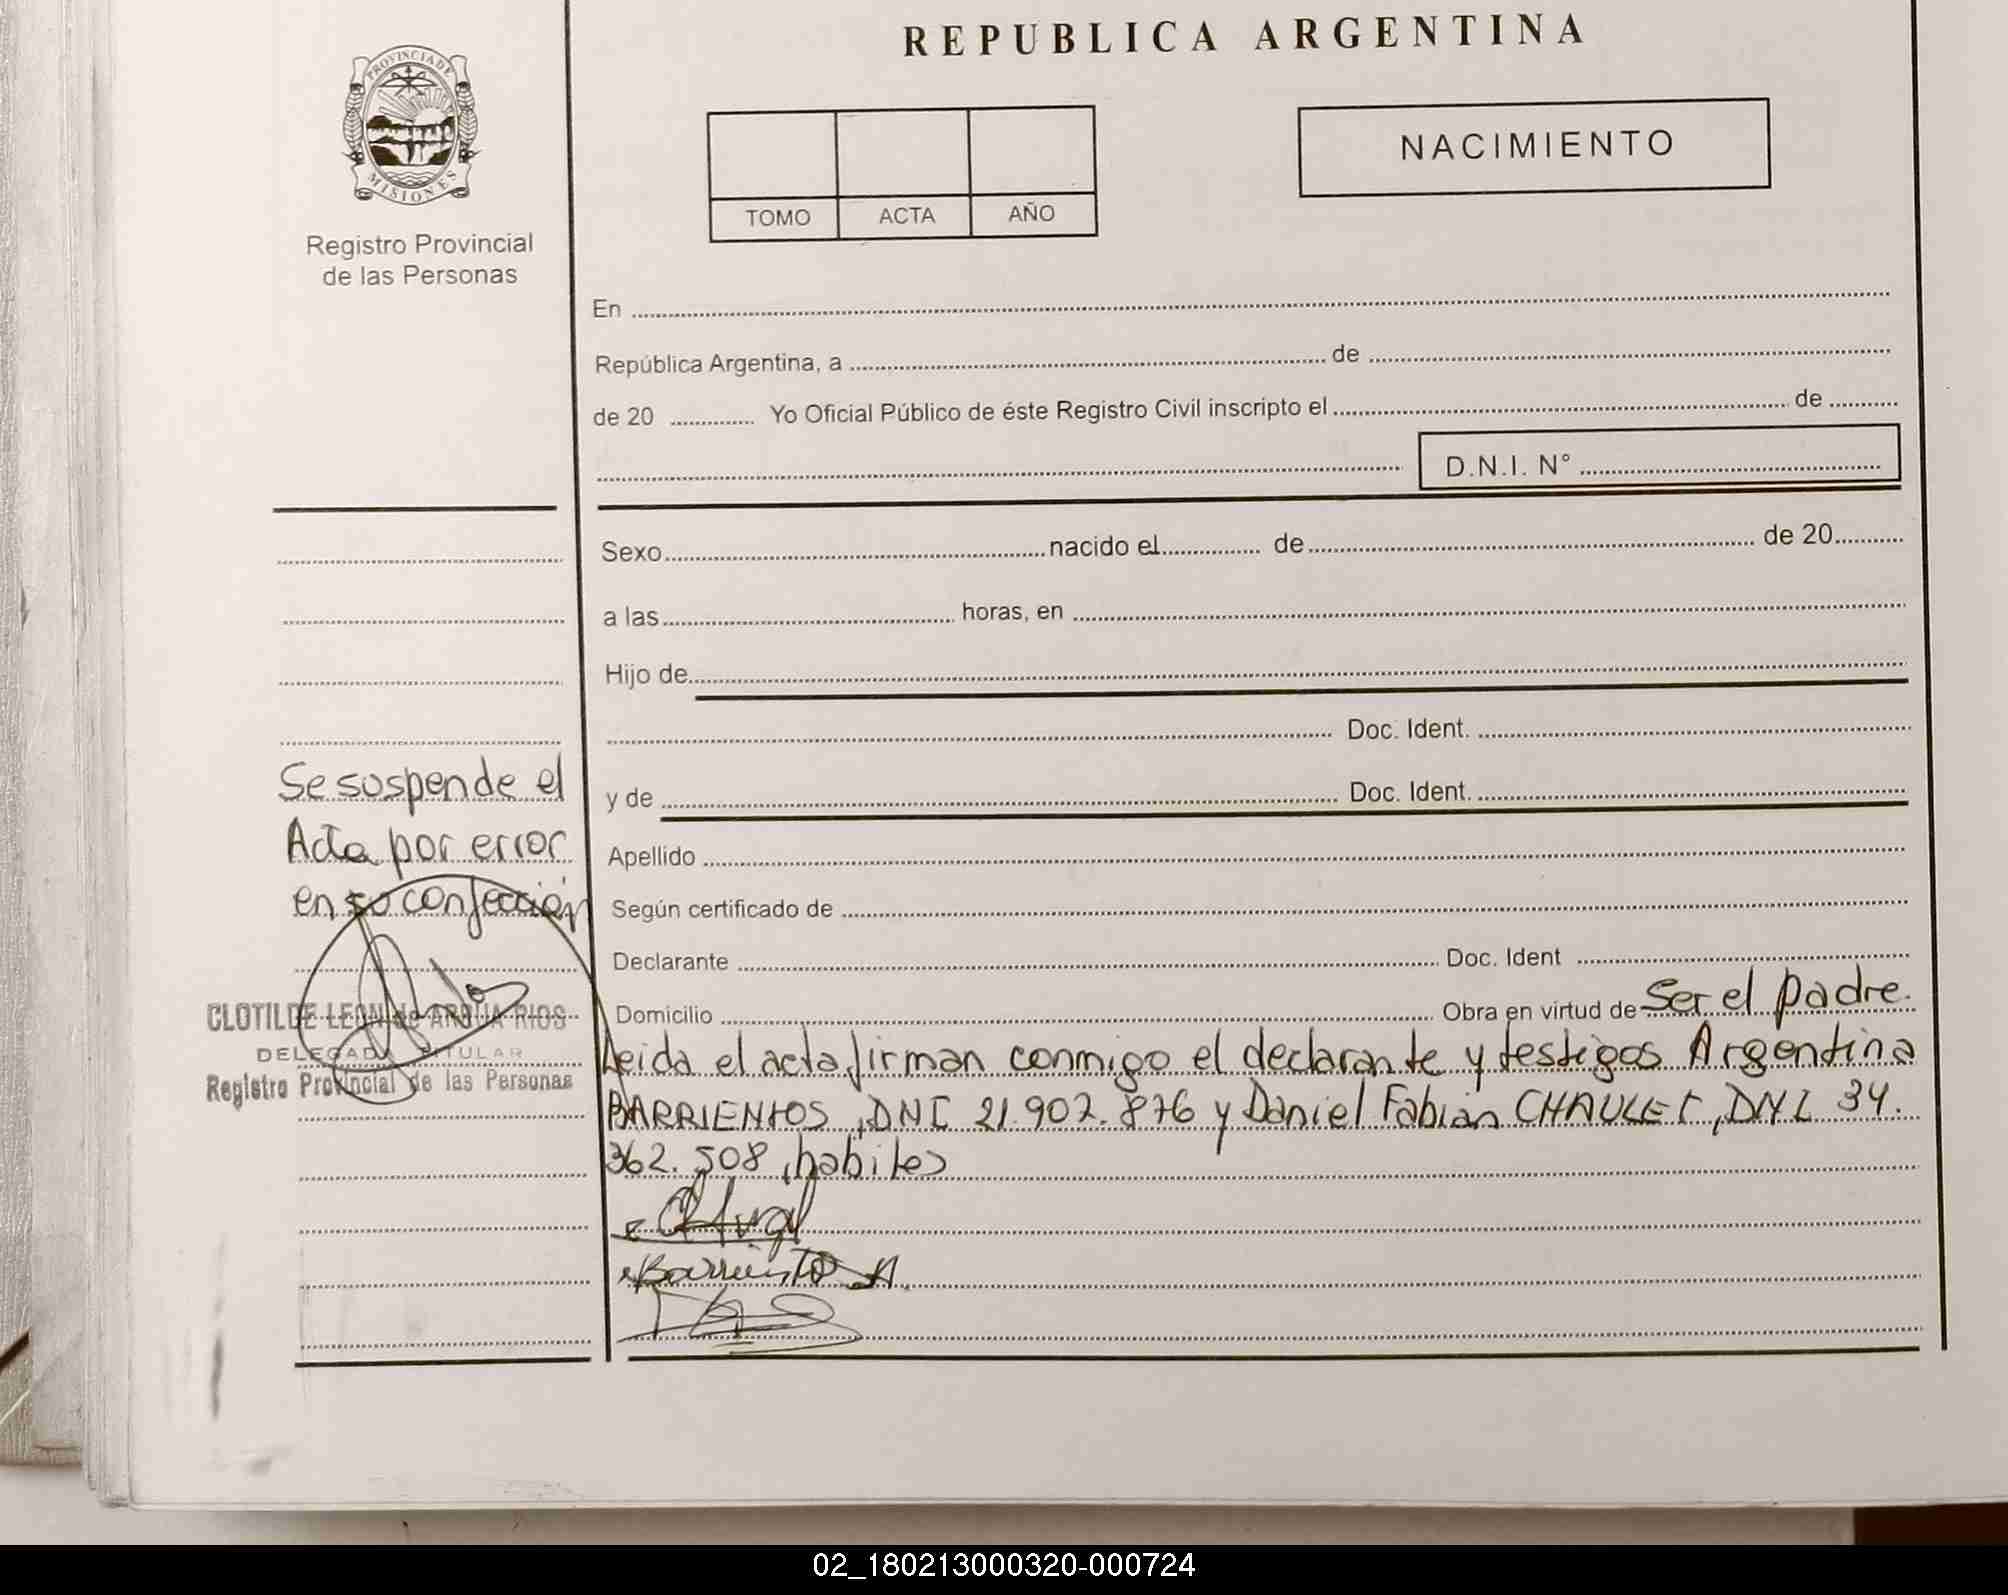 REPUBLICA ARGENTINA
PROVINCIA DE
MISIONES
Registro Provincial
de las Personas
NACIMIENTO
TOMO ACTA AÑO
En
República Argentina, a de
de 20 Yo Oficial Público de éste Registro Civil inscripto el de
D.N.I. N°
Sexo nacido el de de 20
a las horas, en
Hijo de
Doc. Ident.
y de Doc. Ident.
Apellido
Según certificado de
Declarante Doc. Ident
Domicilio Obra en virtud de Ser el padre.
Leida el acta firman conmigo el declarante y testigos Argentina
BARRIENTOS, DNI 21.902.876 y Daniel Fabián CHAULET, DNI 34.
362.508, habiles
Barriento A.
Se suspende el
Acta por error
en su confección
CLOTILDE LEON de RIOS
DELEGADA TITULAR
Registro Provincial de las Personas
02_180213000320-000724